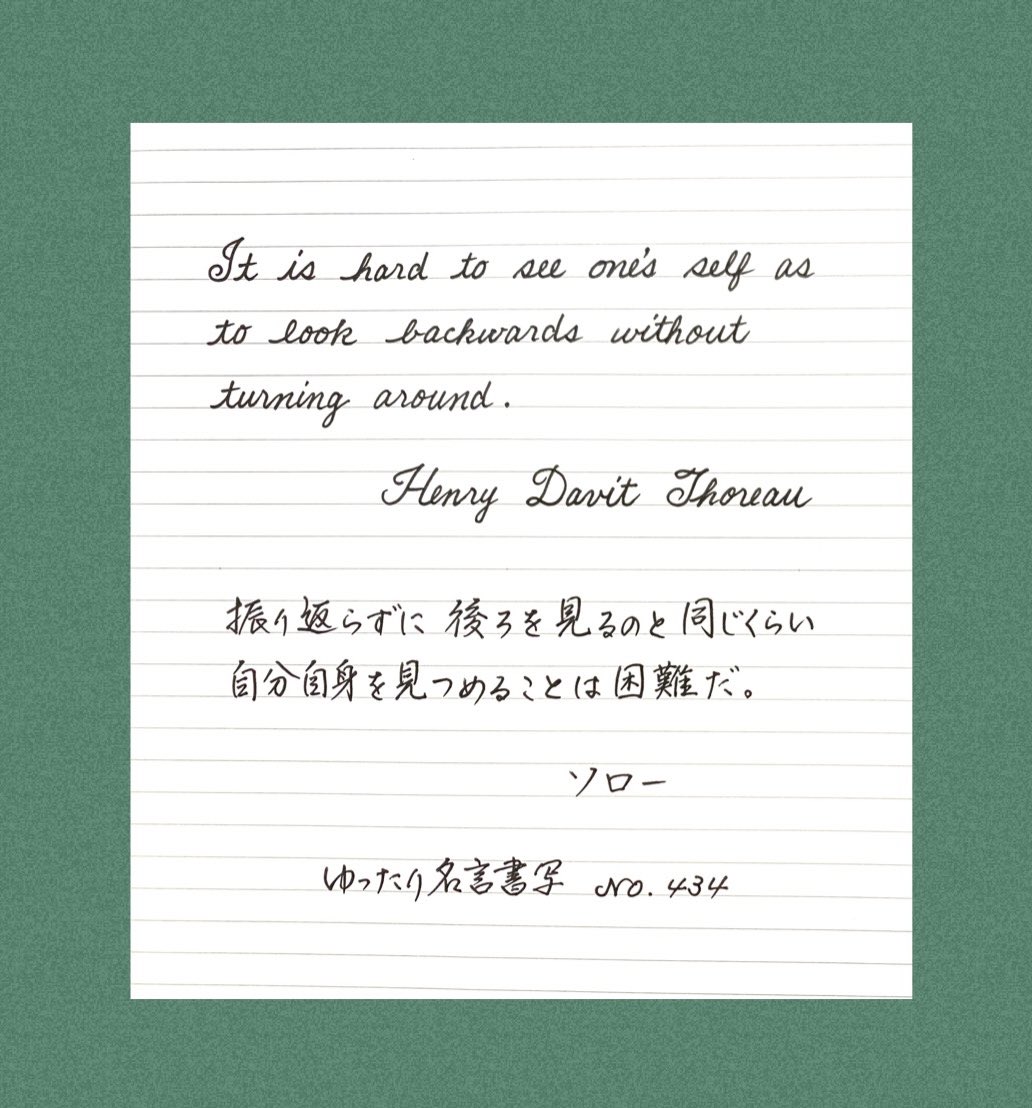 It is hard to see one's self as
to look backwards without
turning around.
Henry Davit Thoreau
振り返らずに後ろを見るのと同じくらい
自分自身を見つめることは困難だ。
ソロー
ゆったり名言書写 NO. 434